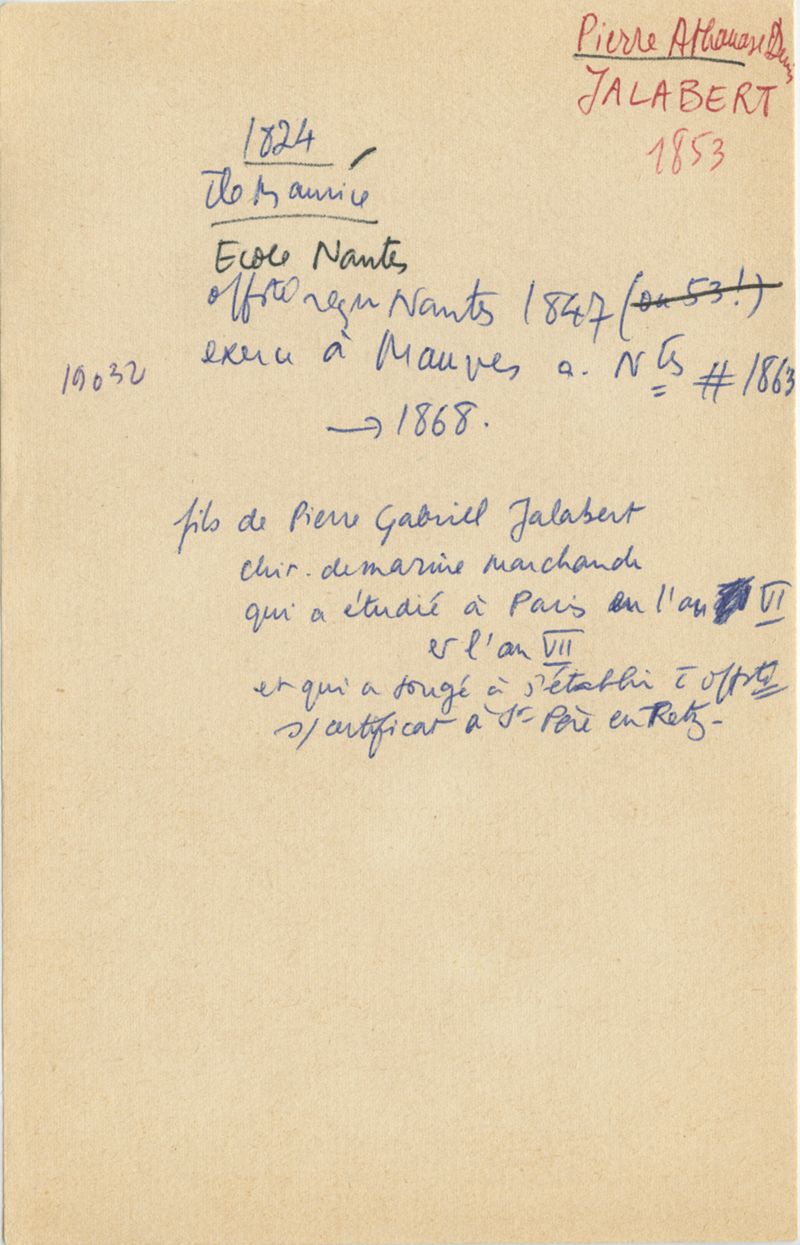 Pierre Athanase Denis
JALABERT
1853
1824
Ile Maurice
Ecole Nantes
offité reçu Nantes 1847 (ou 53!)
exerce à Mauves a. Ntes # 1863
19032
→ 1868.
fils de Pierre Gabriel Jalabert
chir. de marine marchande
qui a étudié à Paris en l'an VI
et l'an VII
et qui a songé à s'établir offité
s/ certificat à St Père en Retz -